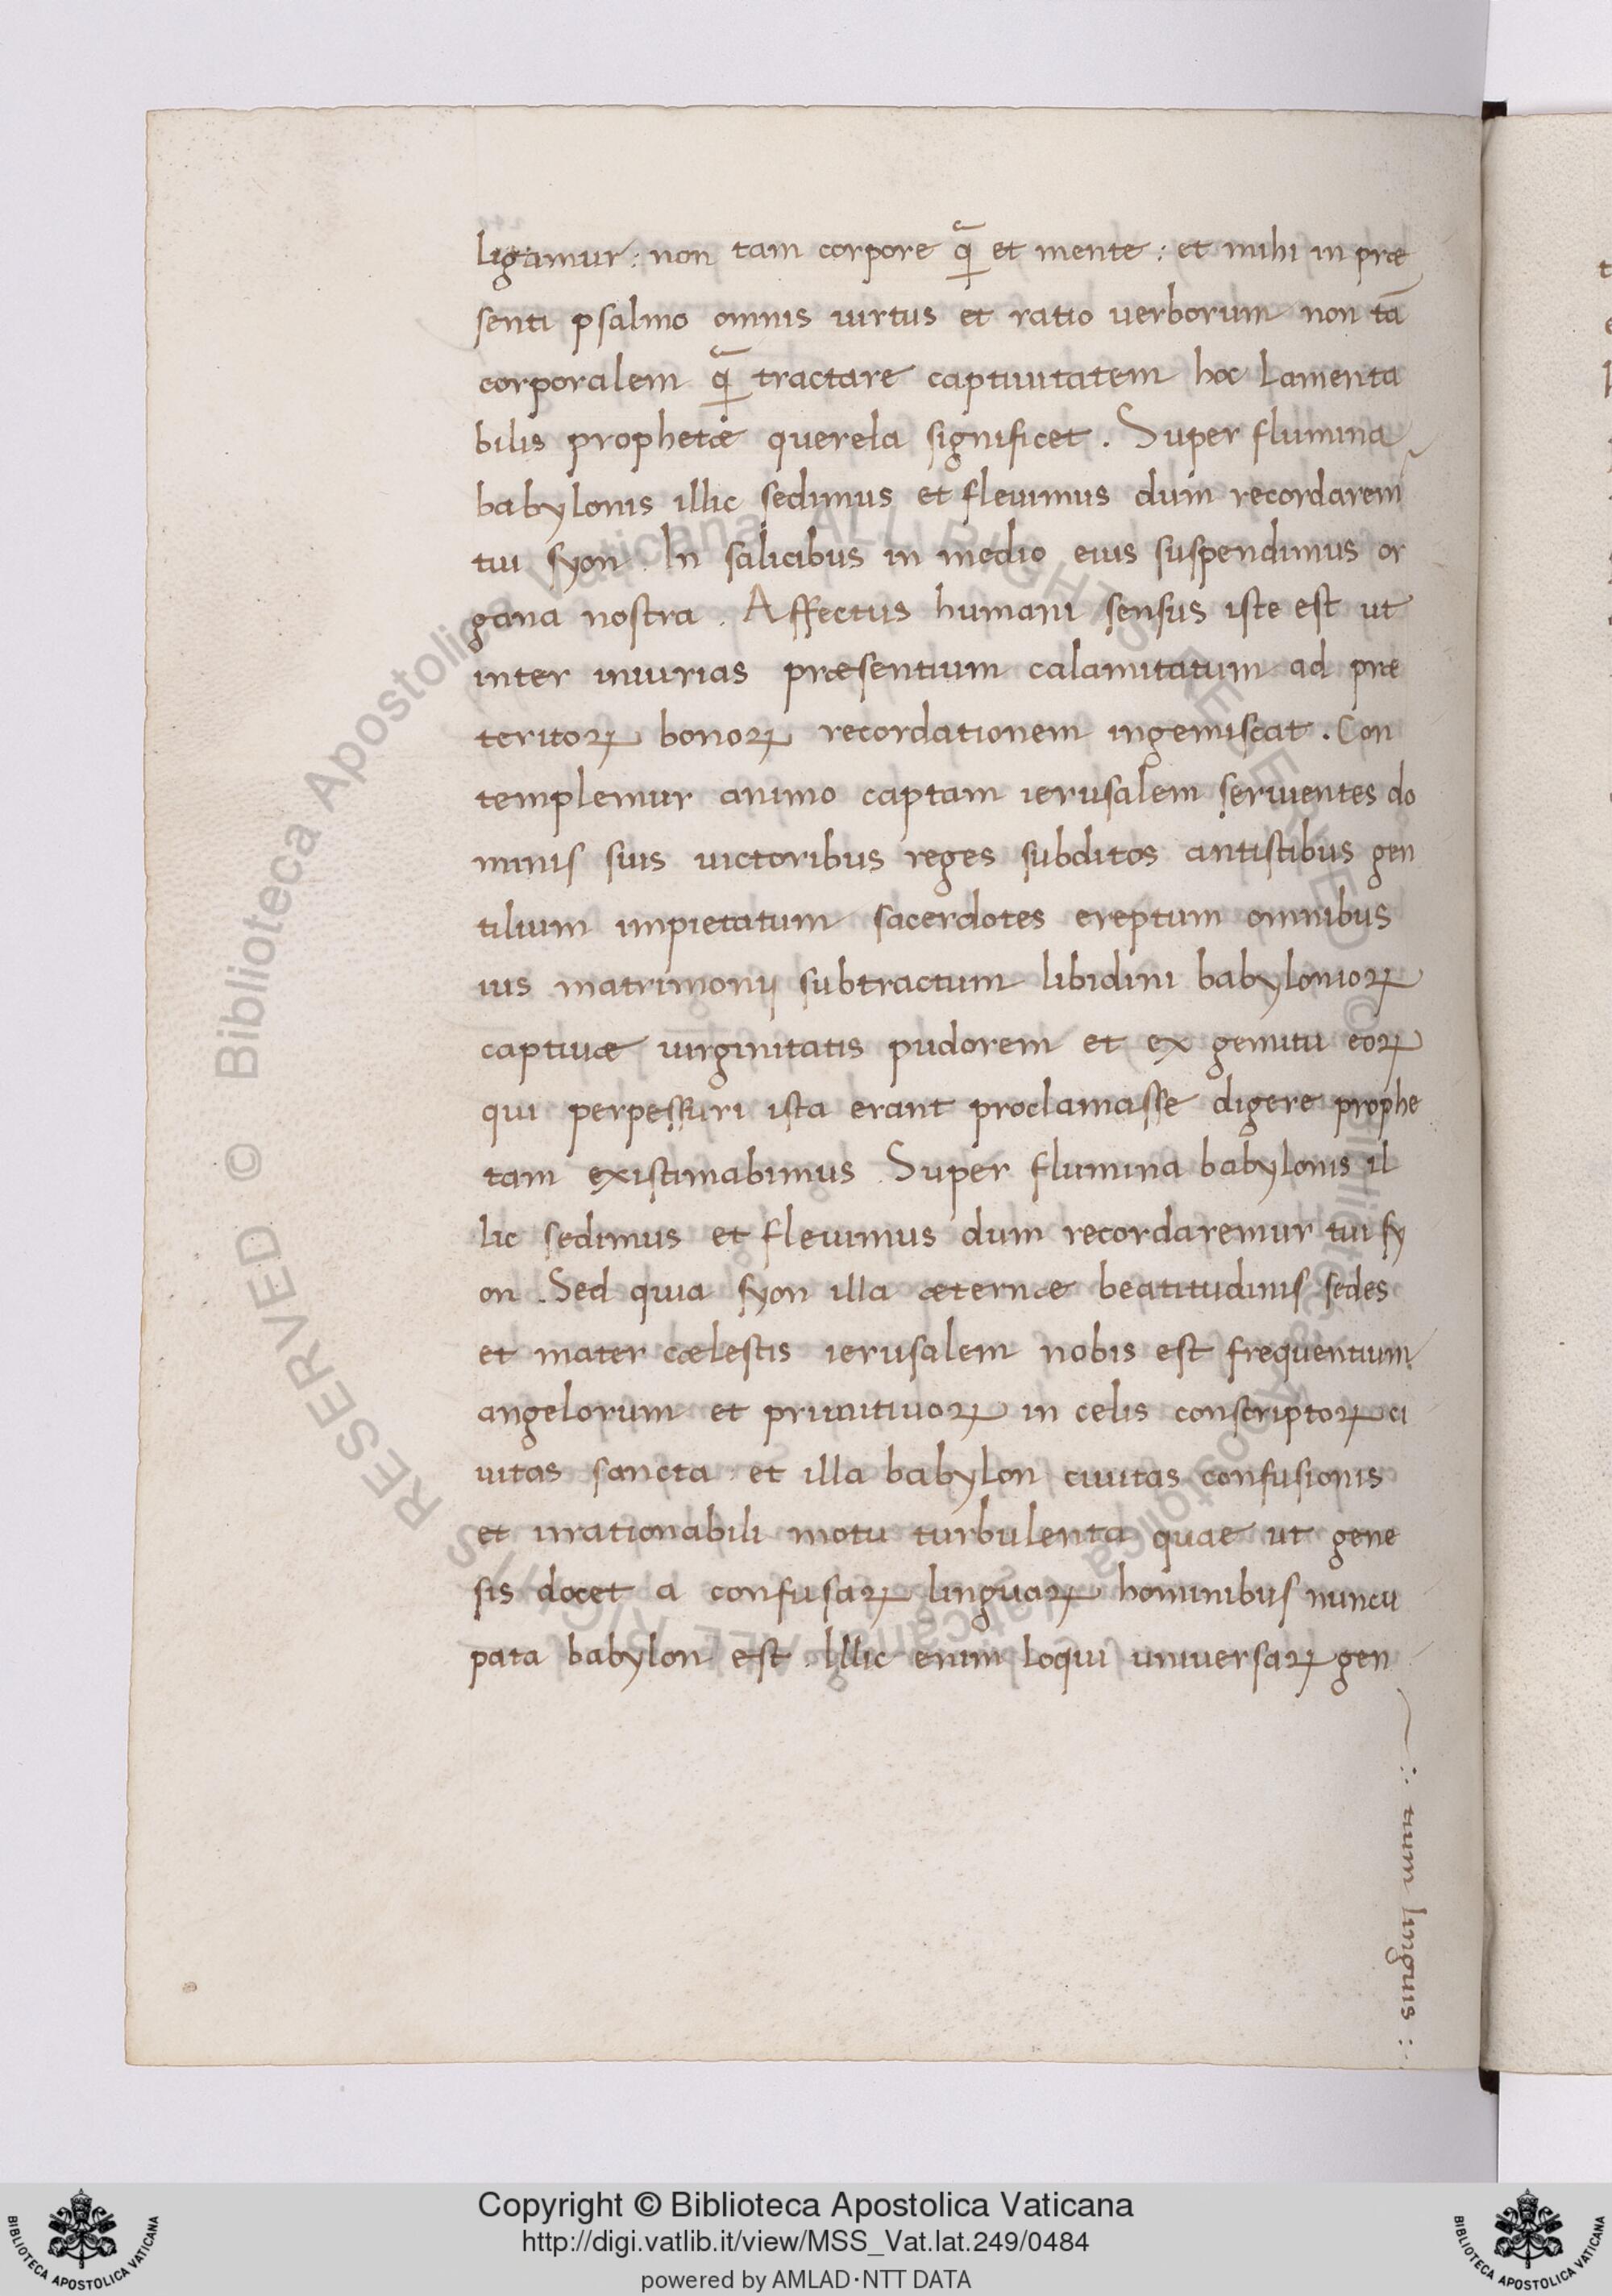 ligamur : non tam corpore qᷓ et mente : et mihi in præ
senti psalmo omnis uirtus et ratio uerborum non tā
corporalem qᷓ tractare captiuitatem hoc lamenta
bilis prophetæ querela significet . Super flumina
babylonis illic sedimus et fleuimus dum recordarem̃
tui syon . In salicibus in medio eius suspendimus or
gana nostra . Affectus humani sensus iste est ut
inter iniurias præsentium calamitatum ad præ
teritoꝝ bonoꝝ recordationem ingemiscat . Con
templemur animo captam ierusalem seruientes do
minis suis uictoribus reges subditos antistibus gen
tilium impietatum sacerdotes ereptum omnibus
ius matrimonij subtractum libidini babylonioꝝ
captiuæ uirginitatis pudorem et ex gemitu eoꝝ
qui perpessuri ista erant proclamasse digere prophe
tam existimabimus . Super flumina babylonis il
lic sedimus et fleuimus dum recordaremur tui sy
on . Sed quia syon illa æternæ beatitudinis sedes
et mater cælestis ierusalem nobis est frequentium
angelorum et primitiuoꝝ in celis conscriptoꝝ ci
uitas sancta et illa babylon ciuitas confusionis
et irrationabili motu turbulenta quae ut gene
sis docet a confusaꝝ linguaꝝ hominibus nuncu
pata babylon est . Illic enim loqui uniuersaꝝ gen
: tium linguis :
© Biblioteca Apostolica Vaticana ALL RIGHTS RESERVED
© Biblioteca Apostolica Vaticana ALL RIGHTS RESERVED
Copyright © Biblioteca Apostolica Vaticana
http://digi.vatlib.it/view/MSS_Vat.lat.249/0484
powered by AMLAD·NTT DATA
BIBLIOTECA APOSTOLICA VATICANA
BIBLIOTECA APOSTOLICA VATICANA